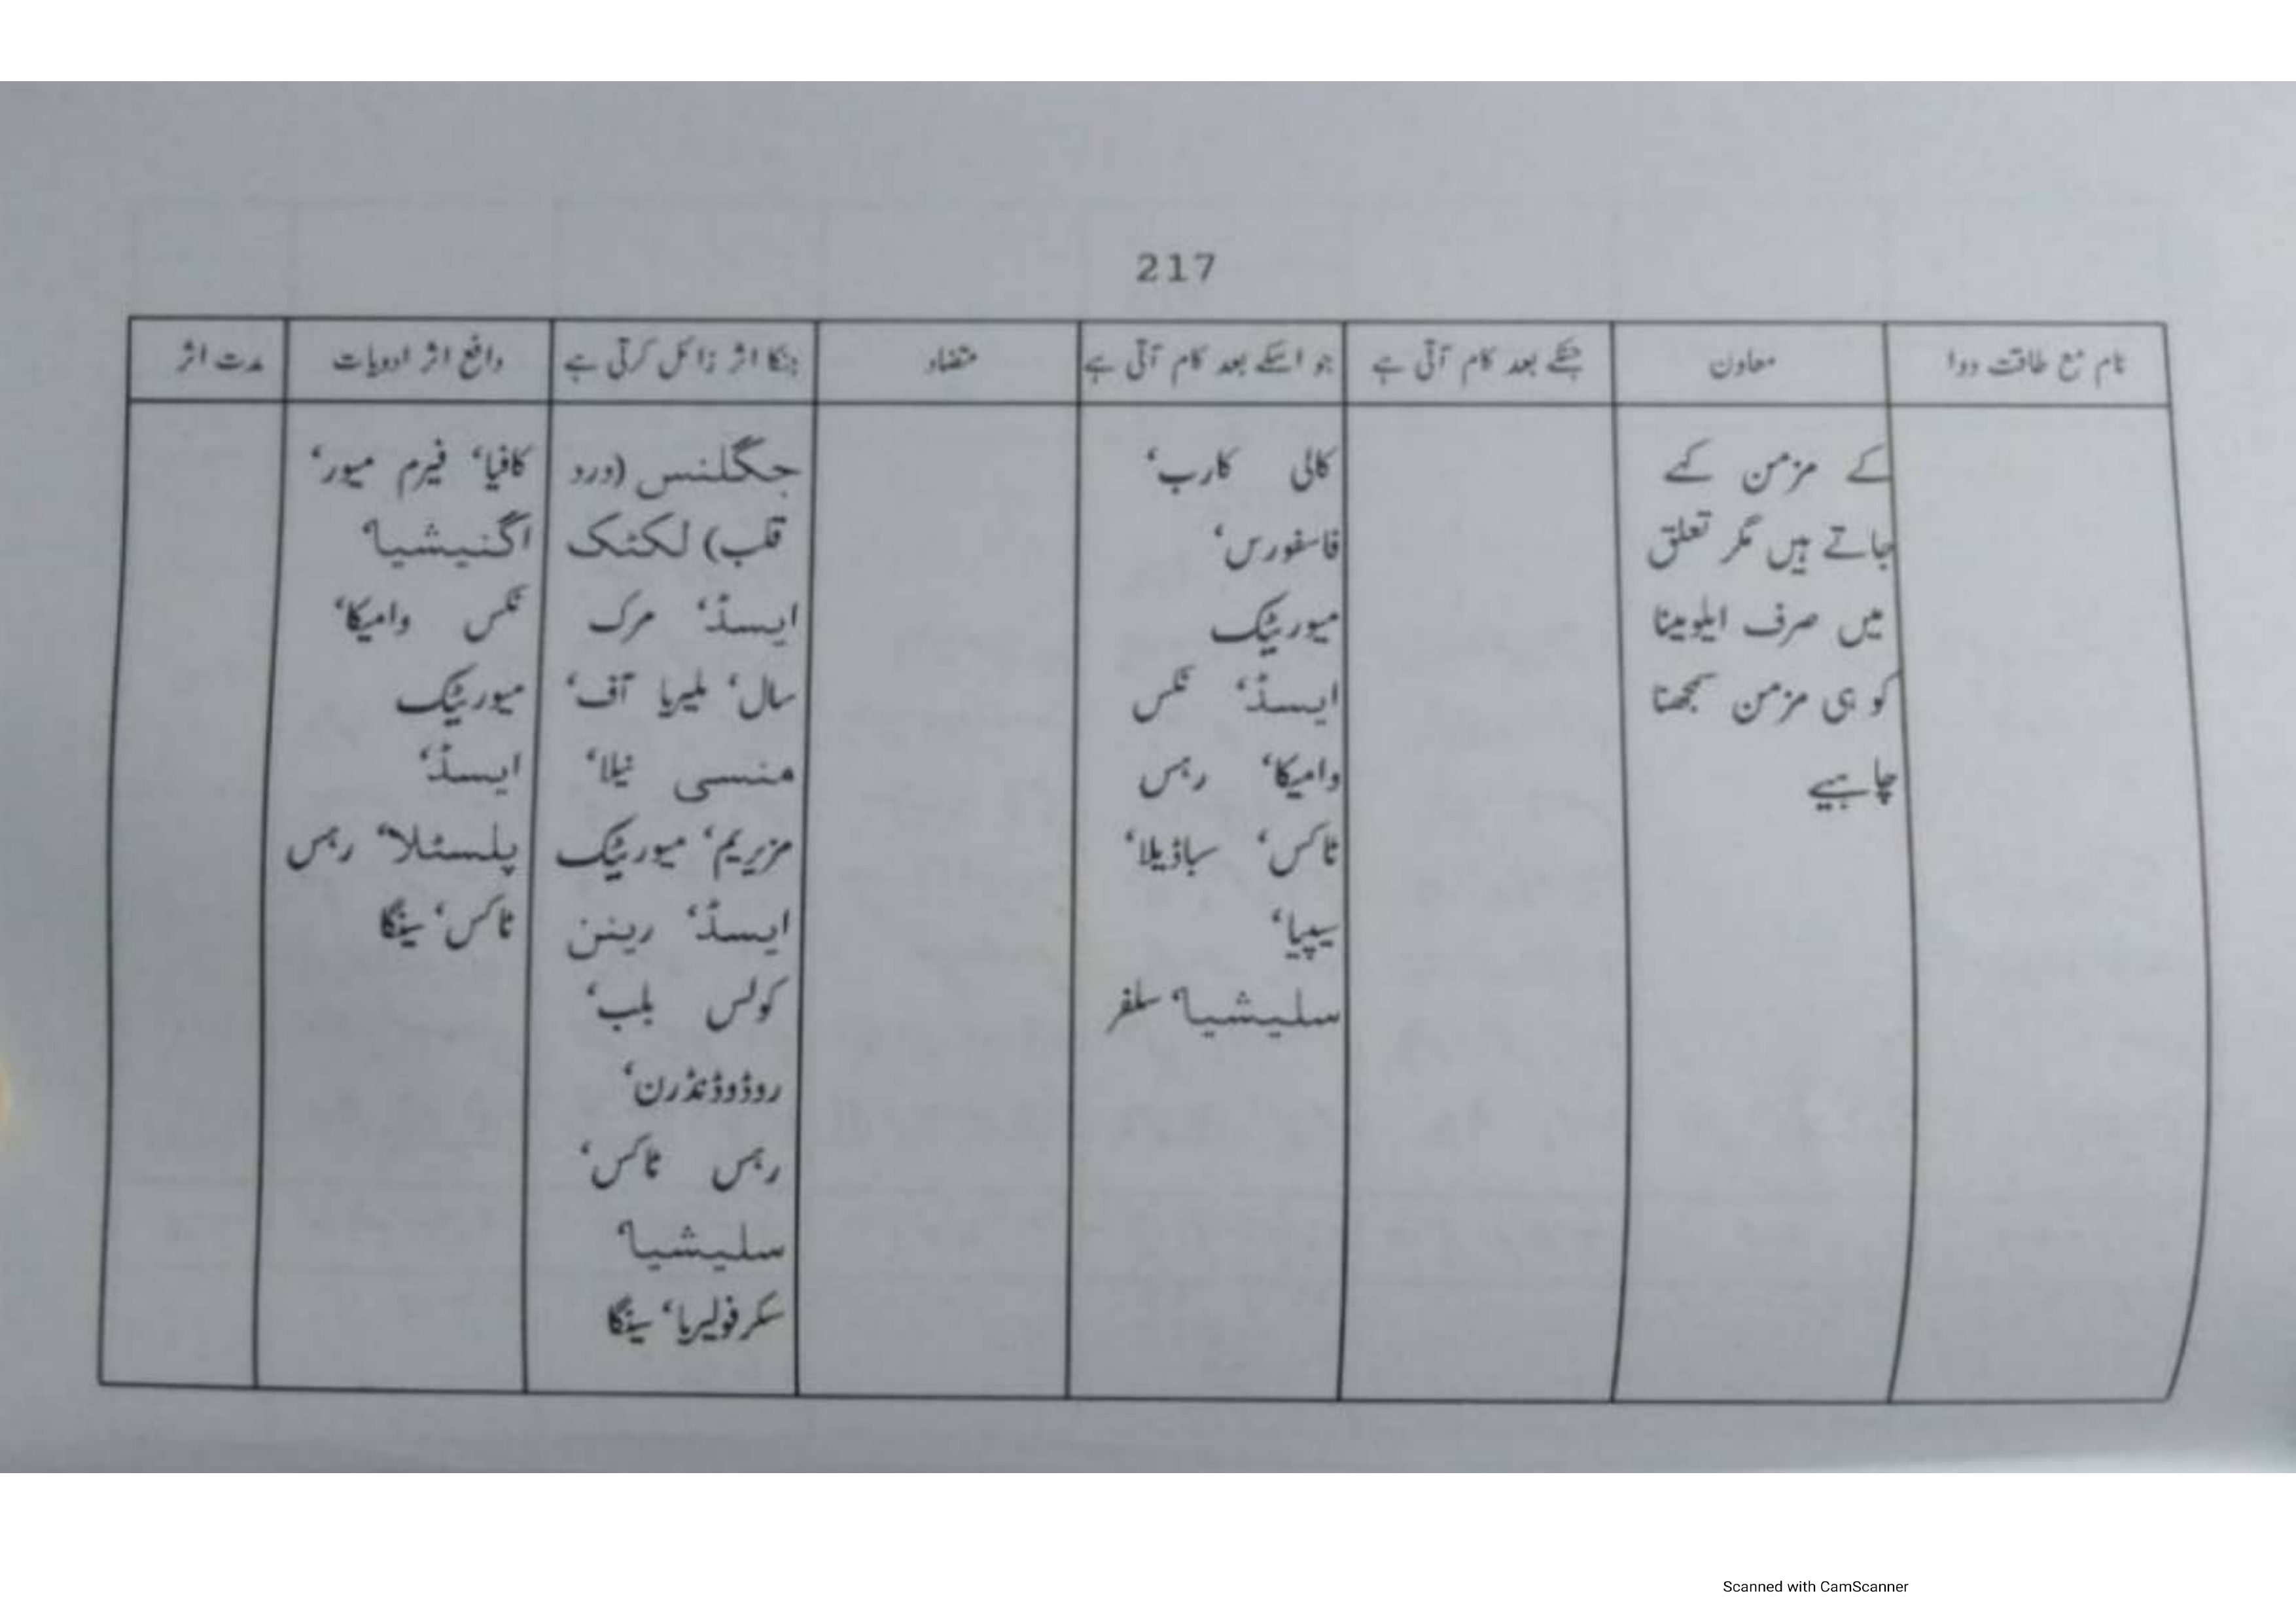 217
نام مع طاقت دوا
معاون
جسکے بعد کام آتی ہے
جو اسکے بعد کام آتی ہے
متضاد
جنکا اثر زائل کرتی ہے
دافع اثر ادویات
مدت اثر
کے مزمن کہے
جاتے ہیں مگر تعلق
میں صرف ایلومینا
کو ہی مزمن سمجھنا
چاہیے
کالی کارب،
فاسفورس،
میوریٹیک
ایسڈ، نکس
وامیکا، رہس
ٹاکس، سباڈیلا،
سیپیا،
سلیشیا، سلفر
جگلنس (درد
قلب) لکٹک
ایسڈ، مرک
سال، ملیریا آف،
منسی نیلا،
مزیریم، میوریٹیک
ایسڈ، رینن
کولس بلب،
روڈوڈنڈرن،
رہس ٹاکس،
سلیشیا،
سکرفولیریا، سینگا
کافیا، فیرم میور،
اگنیشیا،
نکس وامیکا،
میوریٹیک
ایسڈ،
پلسٹلا، رہس
ٹاکس، سینگا
Scanned with CamScanner